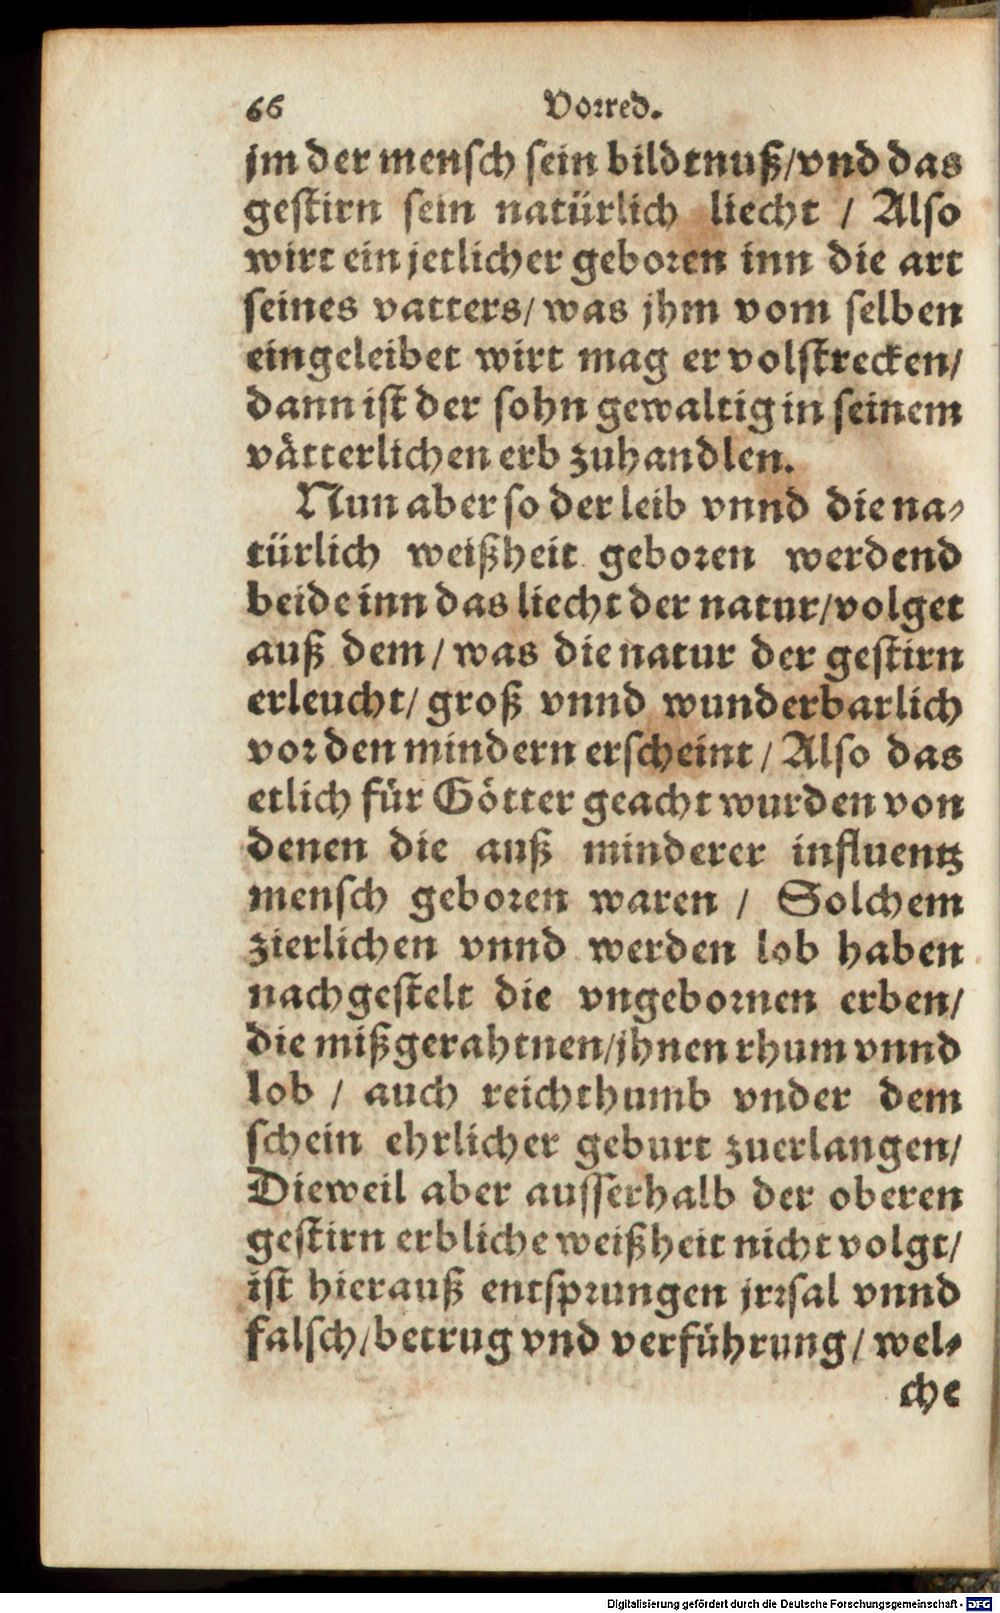 66 Vorred.
jm der mensch sein bildtnuß/vnd das
gestirn sein natürlich liecht / Also
wirt ein jetlicher geboren inn die art
seines vatters/ was jhm vom selben
eingeleibet wirt mag er volstrecken/
dann ist der sohn gewaltig in seinem
vätterlichen erb zuhandlen.
Nun aber so der leib vnnd die na⸗
türlich weißheit geboren werdend
beide inn das liecht der natur/volget
auß dem/ was die natur der gestirn
erleucht/ groß vnnd wunderbarlich
vor den mindern erscheint/ Also das
etlich für Götter geacht wurden von
denen die auß minderer influentz
mensch geboren waren / Solchem
zierlichen vnnd werden lob haben
nachgestelt die vngebornen erben/
die mißgerahtnen/jhnen rhum vnnd
lob / auch reichthumb vnder dem
schein ehrlicher geburt zuerlangen/
Dieweil aber ausserhalb der oberen
gestirn erbliche weißheit nicht volgt/
ist hierauß entsprungen jrrsal vnnd
falsch/betrug vnd verführung/ wel⸗
che
Digitalisierung gefördert durch die Deutsche Forschungsgemeinschaft - DFG